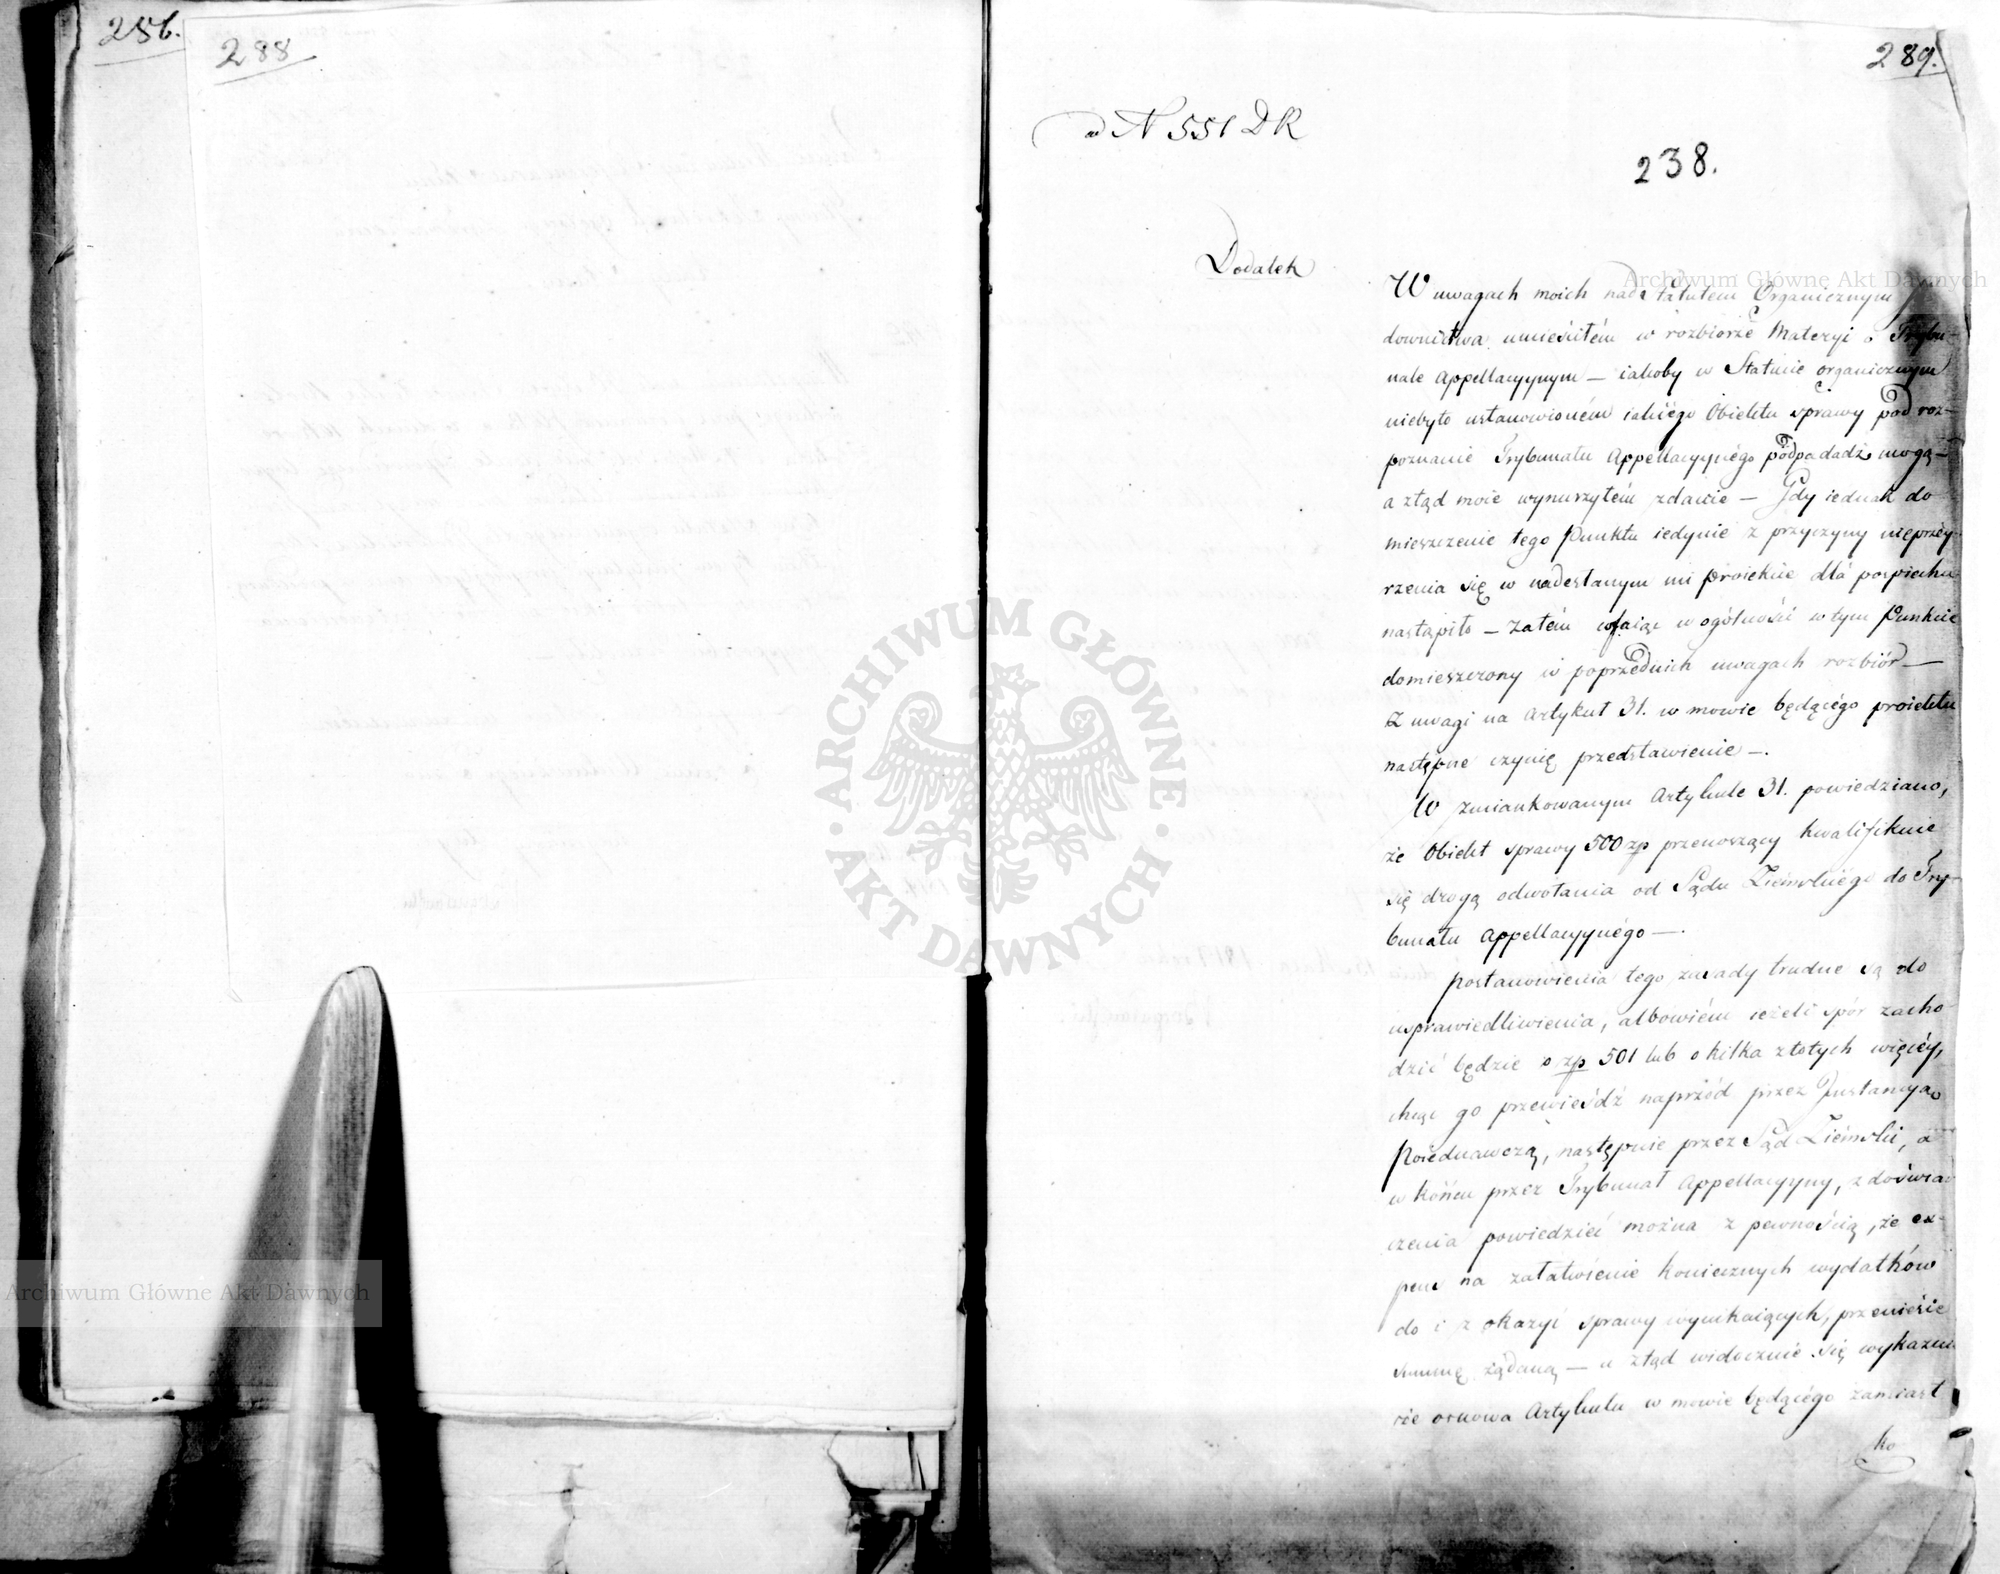 256.
288
289.
ad N 551 DR
238.
Dodatek
W uwagach moich nad Statutem Organicznym
downictwa umieściłem w rozbiorze Materyi o Trybu-
nale Appellacyjnym — iakoby w Statucie organicznym
niebyło ustanowioném iakiégo Obiektu sprawy pod roz-
poznanie Trybunału Appellacyjnégo podpadadź mogą —
a ztąd moie wynurzyłem zdanie — Gdy iednak do
mieszczenie tego Punktu iedynie z przyczyny nieprzey-
rzenia się w nadesłanym mi proiekcie dla pospiechu
nastąpiło — zatém cofaiąc w ogólności w tym Punkcie
domieszczony w poprzednich uwagach rozbiór —
z uwagi na Artykuł 31. w mowie będącégo proiektu
następne czynię przedstawienie —.
W zmiankowanym Artykule 31. powiedziano,
że Obiekt sprawy 500 zp przenoszący kwalifikuie
się drogą odwołania od Sądu Ziemskiégo do Try-
bunału Appellacyjnégo —.
Postanowienia tego zasady trudne są do
usprawiedliwienia, albowiém ieżeli spór zacho
dzić będzie o zp 501 lub o kilka złotych więcéy,
chcąc go przewieśdź naprzód przez Instancyą
Poiednawczą, następnie przez Sąd Ziemski, a
w końcu przez Trybunał Appellacyjny, z doświad
czenia powiedzieć można z pewnością, że ex-
pens na załatwienie koniecznych wydatków
do i z okazyi sprawy wynikaiących, przeniesie
summę żądaną — a ztąd widocznie się wykazu
ie osnowa Artykułu w mowie będącégo zamiast
ko
Archiwum Główne Akt Dawnych
Archiwum Główne Akt Dawnych
ARCHIWUM GŁÓWNE
AKT DAWNYCH